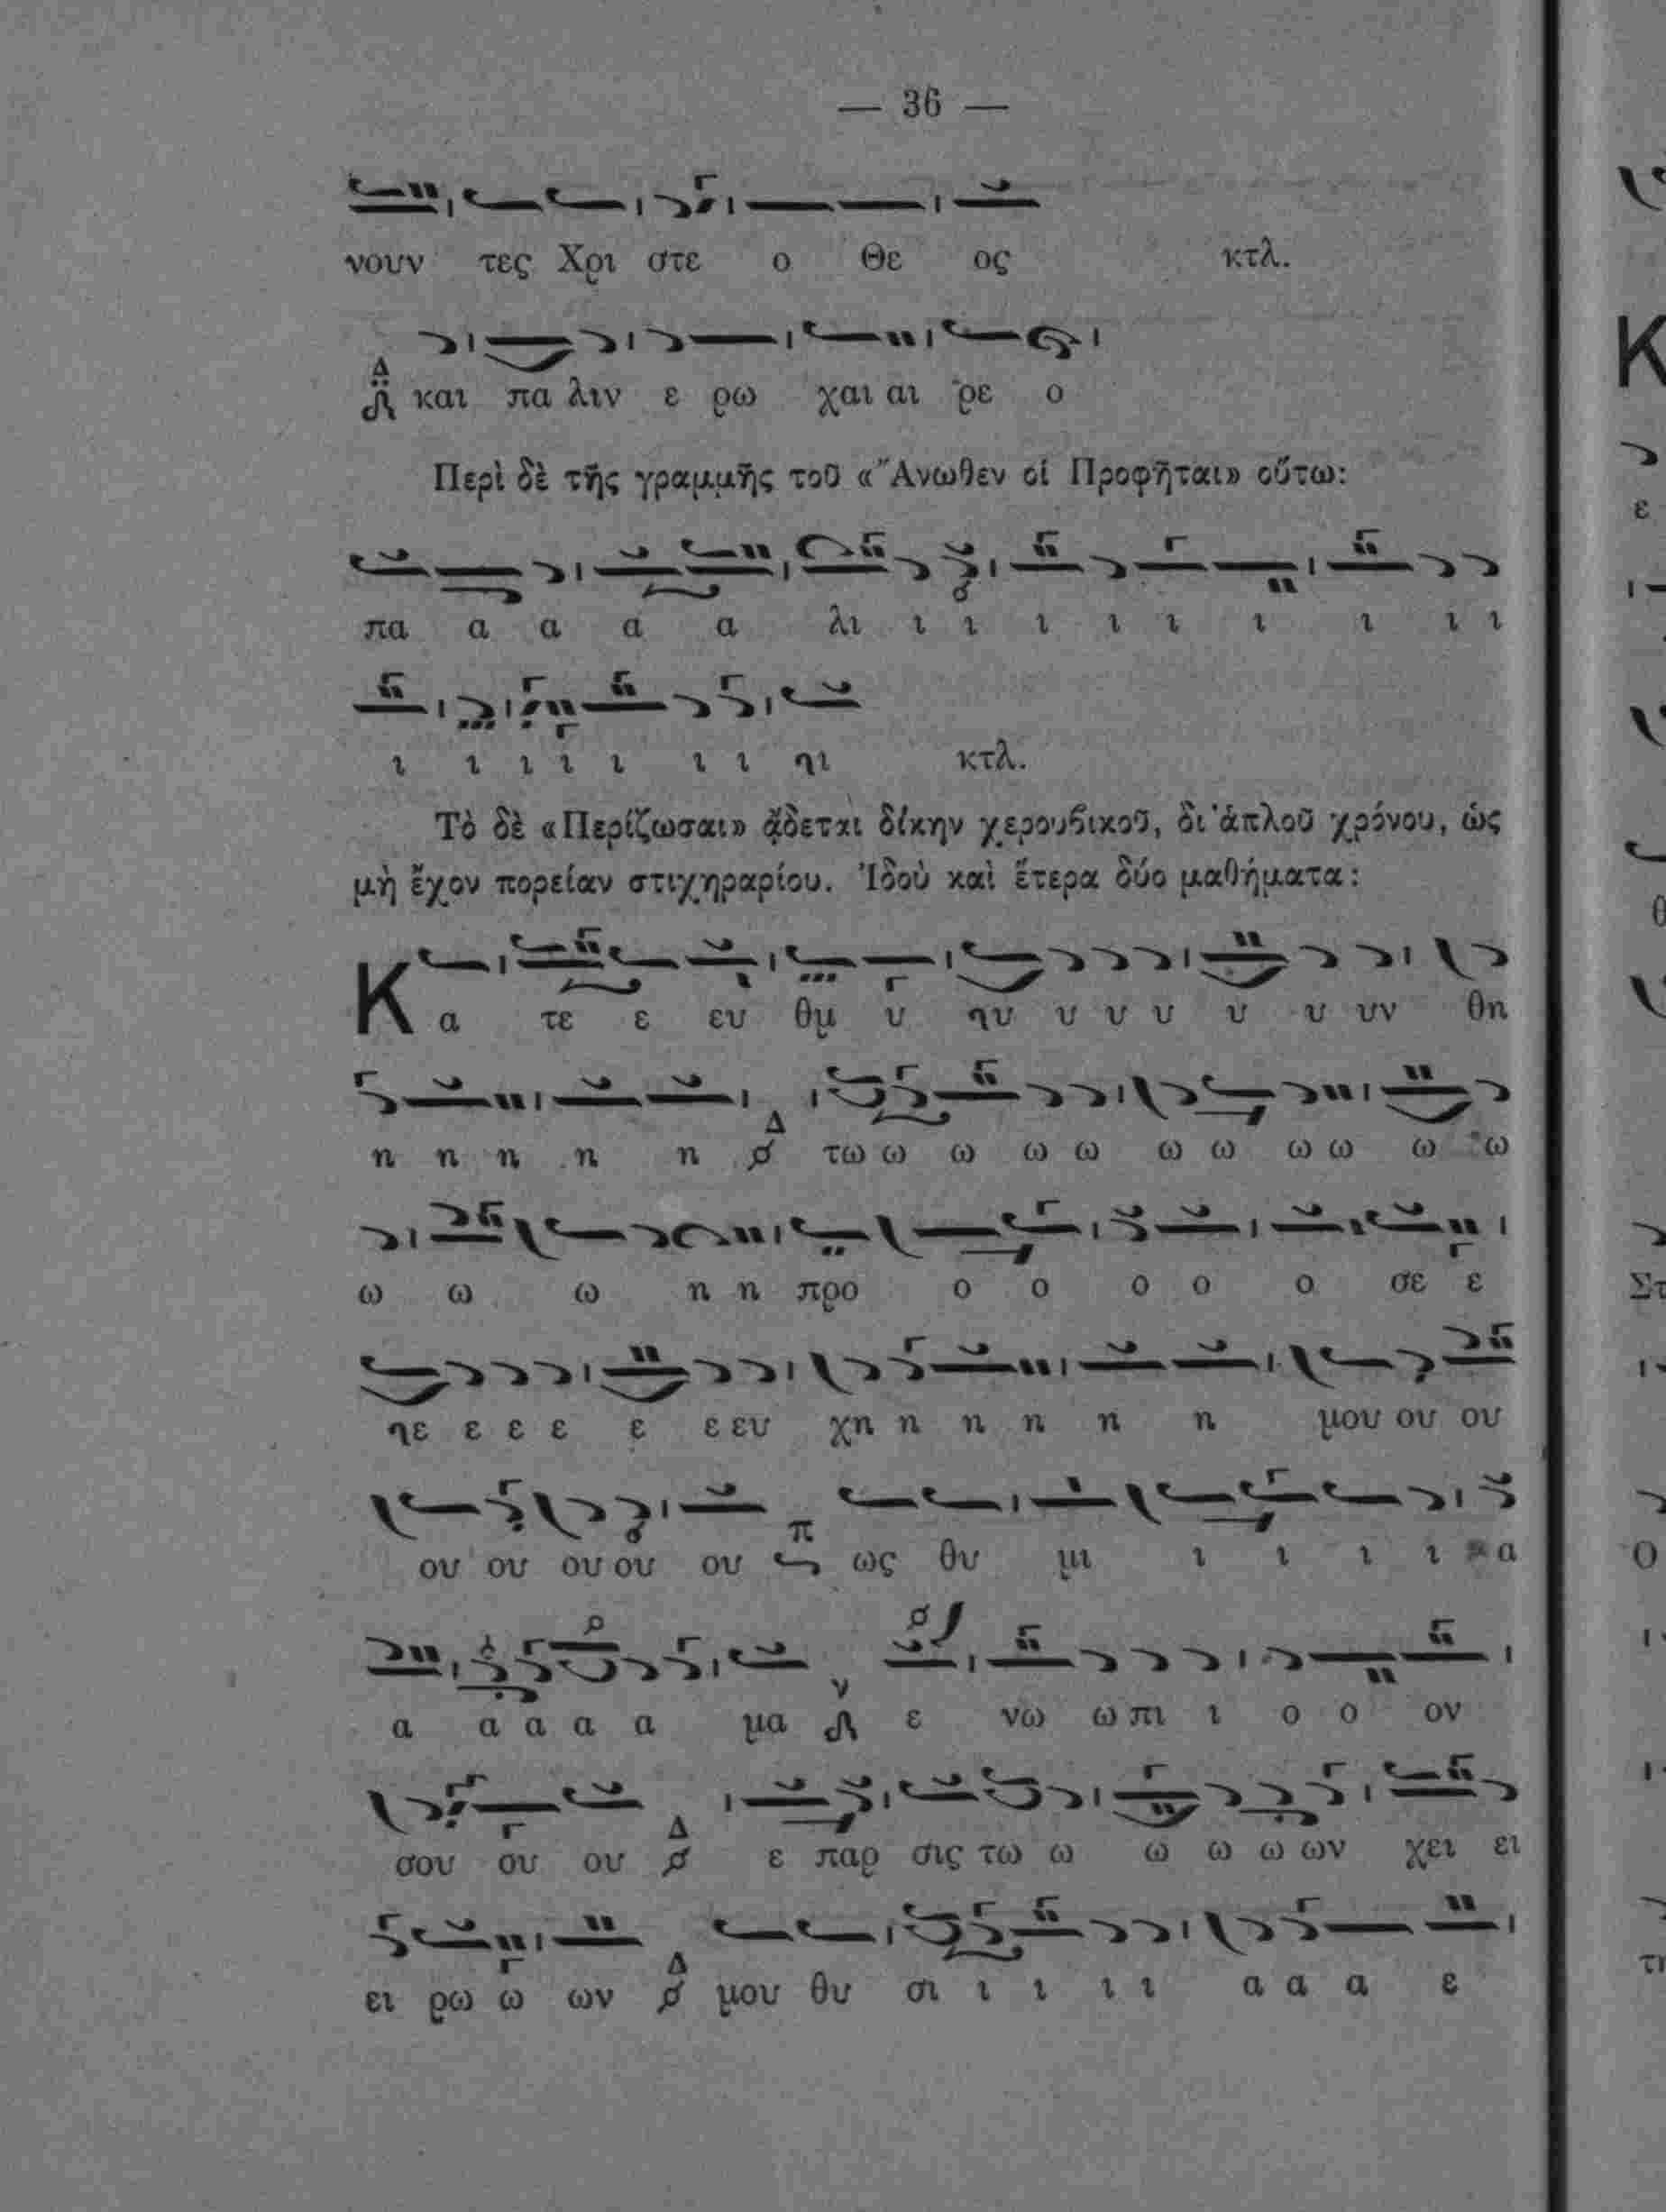 — 36 —
νουν τες Χρι στε ο Θε ος κτλ.
Δ
και πα λιν ε ρω χαι αι ρε ο
Περὶ δὲ τῆς γραμμῆς τοῦ «Ἄνωθεν οἱ Προφῆται» οὕτω:
πα α α α α λι ι ι ι ι ι ι ι ι ι
ι ι ι ι ι ι ι ηι κτλ.
Τὸ δὲ «Περίζωσαι» ᾄδεται δίκην χερουβικοῦ, δι᾿ ἁπλοῦ χρόνου, ὡς
μὴ ἔχον πορείαν στιχηραρίου. Ἰδοὺ καὶ ἕτερα δύο μαθήματα:
Κ α τε ε ευ θμ υ ηυ υ υ υ υ υ υν θη
η η η η η Δ τω ω ω ω ω ω ω ω ω ω ω
ω ω ω η η προ ο ο ο ο ο σε ε
ηε ε ε ε ε ε ευ χη η η η η η μου ου ου
ου ου ου ου ου π ως θυ μι ι ι ι ι α
α α α α α μα ν ε νω ω πι ι ο ο ον
σου ου ου Δ ε παρ σις τω ω ω ω ω ων χει ει
ει ρω ω ων Δ μου θυ σι ι ι ι ι α α α ε